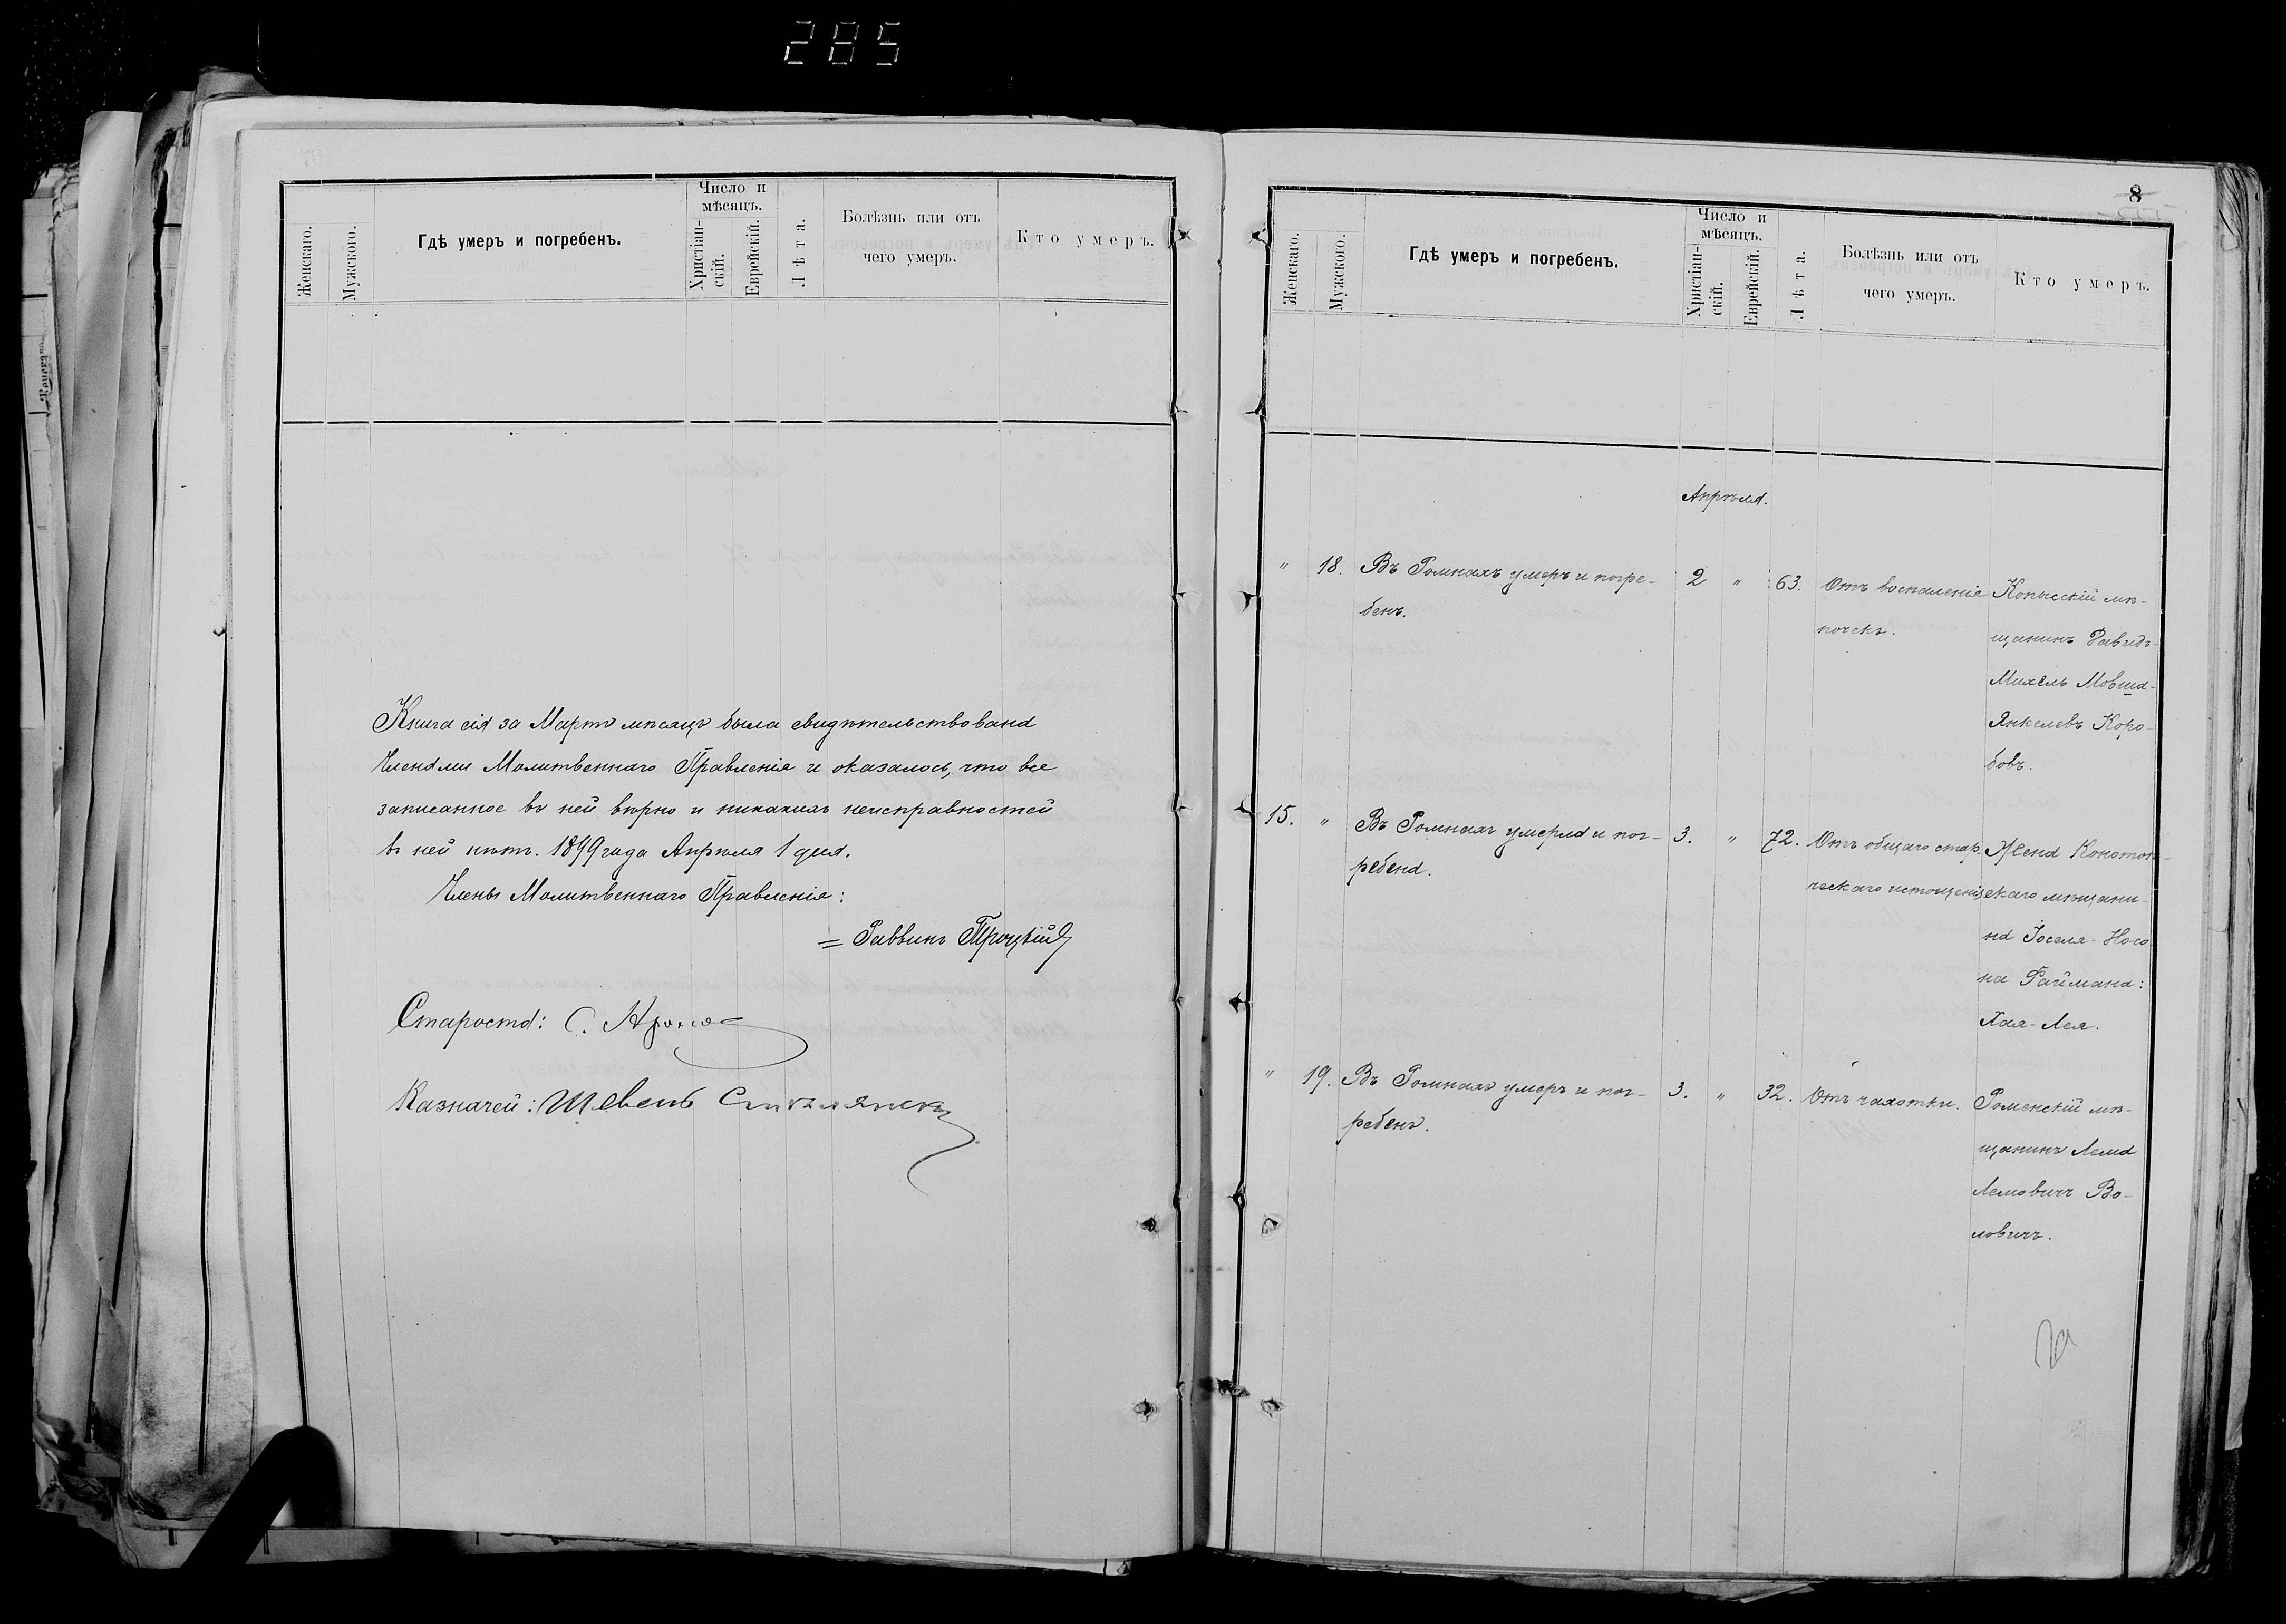 285
Женскаго.
Мужского.
Гдѣ умеръ и погребенъ.
Число и
мѣсяцъ.
Христіан-
скій.
Еврейскій.
Лѣта.
Болѣзнь или отъ
чего умеръ.
Кто умеръ.
Книга сія за Мартъ мѣсяцъ была свидѣтельствована
Членами Молитвеннаго Правленія и оказалось, что все
записанное въ ней вѣрно и никакихъ неисправностей
въ ней нѣтъ. 1899 года Апрѣля 1 дня.
Члены Молитвеннаго Правленія:
= Раввинъ Троцкій
Староста: С.
Казначей: Шевель
8
Женскаго.
Мужского.
Гдѣ умеръ и погребенъ.
Число и
мѣсяцъ.
Христіан-
скій.
Еврейскій.
Лѣта.
Болѣзнь или отъ
чего умеръ.
Кто умеръ.
Апрѣля.
" 18. Въ Ромнахъ умеръ и погре- 2 " 63. Отъ воспаленія Копысскій мѣ-
бенъ. почекъ. щанинъ Давидъ-
Михель Мовша-
Янкелевъ Коро-
бовъ.
15. " Въ Ромнахъ умерла и пог- 3. " 72. Отъ общаго стар- Жена Конотоп-
ребена. ческаго истощенія скаго мѣщани-
на Іоселя-Носо-
на Раймана:
Хая-Лея.
" 19. Въ Ромнахъ умеръ и пог- 3. " 32. Отъ чахотки. Роменскій мѣ-
ребенъ. щанинъ Лема
Лемовичъ Во-
ловичъ.